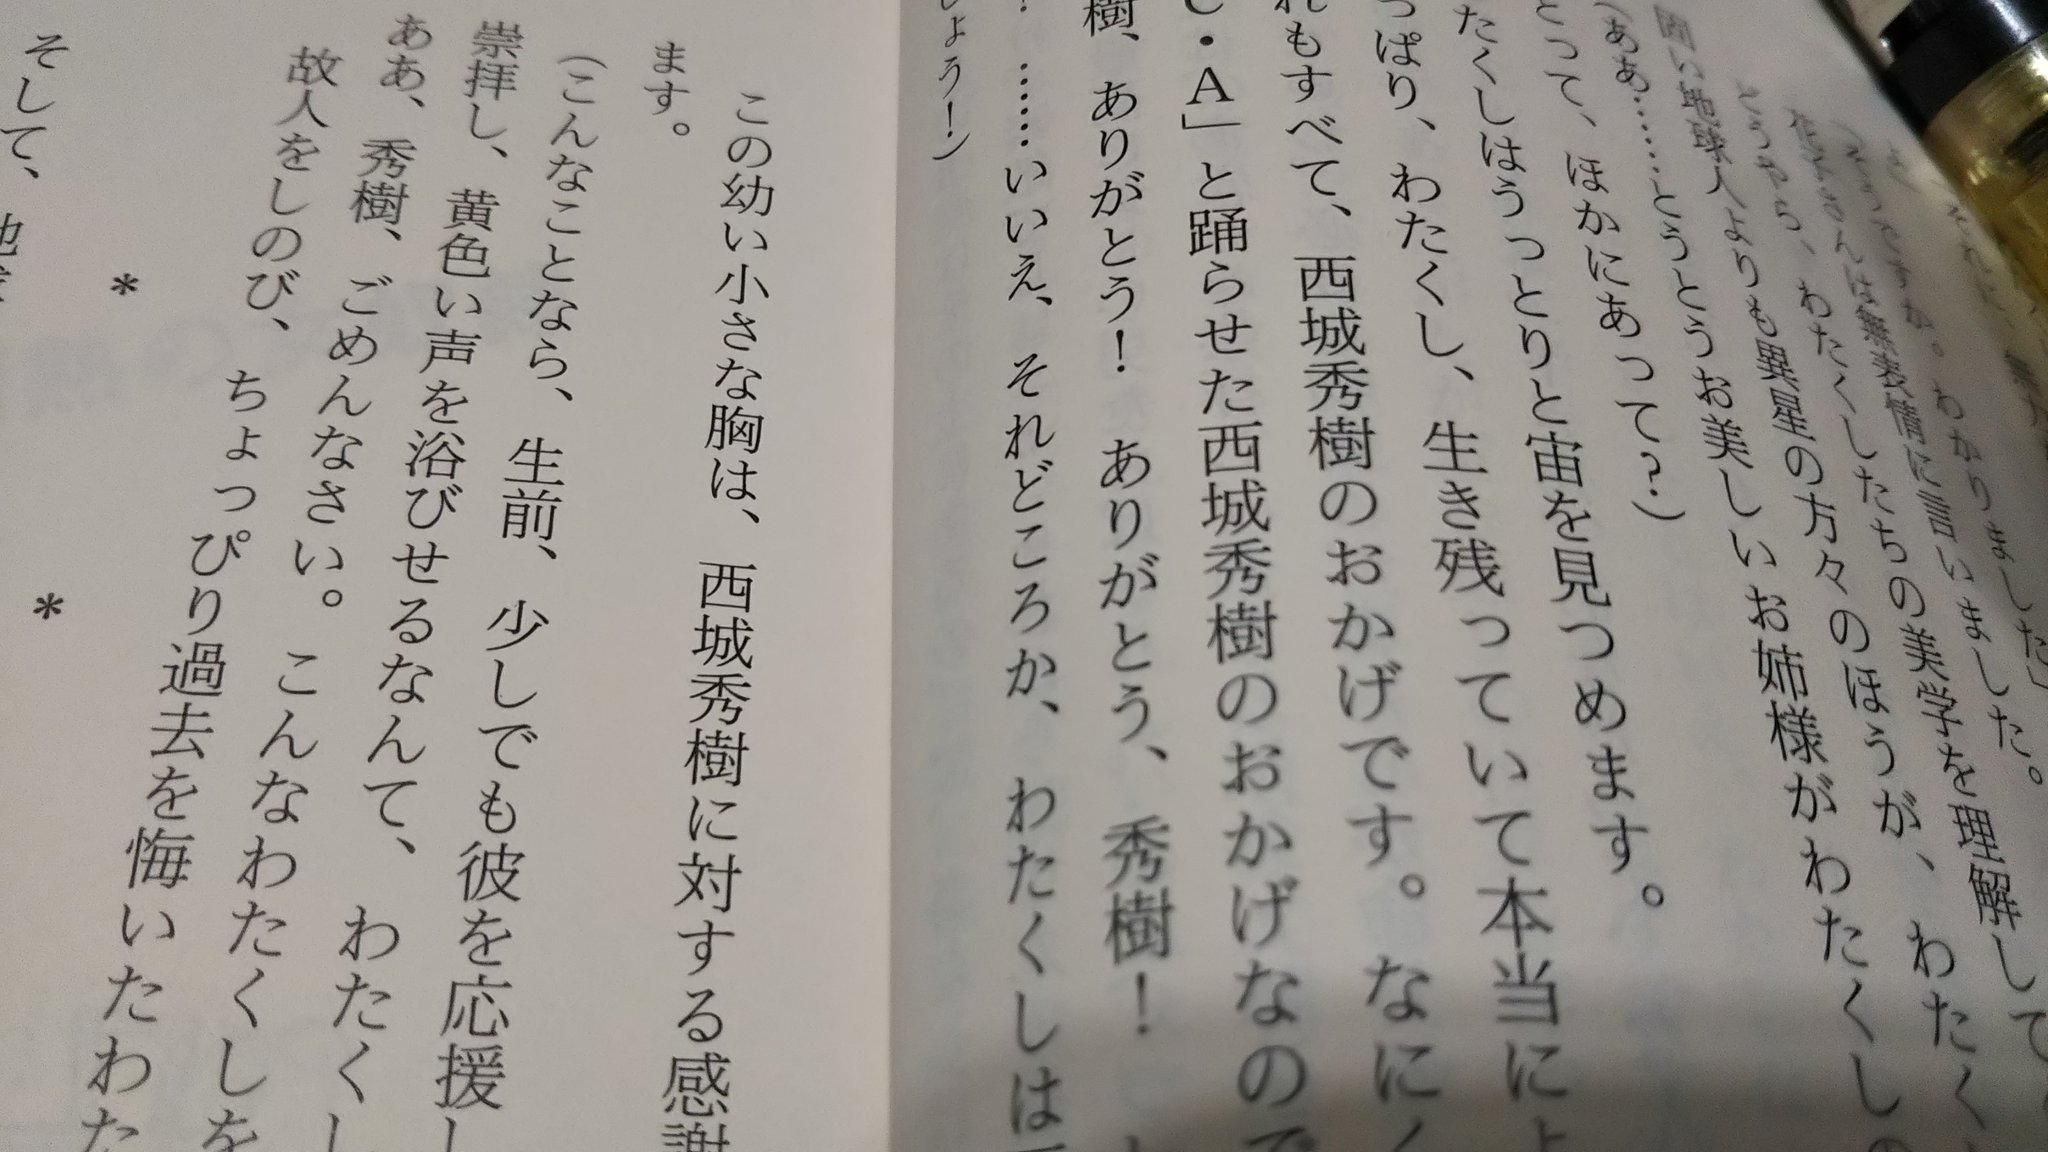 ました」
わかりました。
無表情に言いました。
わたくしたちの美学を理解して
わたく
異星の方々のほうが、わたく
固い地球人よりも
(ああ……とうとうお美しいお姉様がわたくしの
とって、ほかにあって?)
たくしはうっとりと宙を見つめます。
っぱり、わたくし、生き残っていて本当に
れもすべて、西城秀樹のおかげです。なにく
・A」と踊らせた西城秀樹のおかげなので
樹、ありがとう! ありがとう、秀樹!
! ……いいえ、それどころか、わたくしは
しょう!)
この幼い小さな胸は、西城秀樹に対する感謝
ます。
(こんなことなら、生前、少しでも彼を応援し
崇拝し、黄色い声を浴びせるなんて、わたくし
ああ、秀樹、ごめんなさい。こんなわたくしを
故人をしのび、ちょっぴり過去を悔いたわた
* *
そして、地